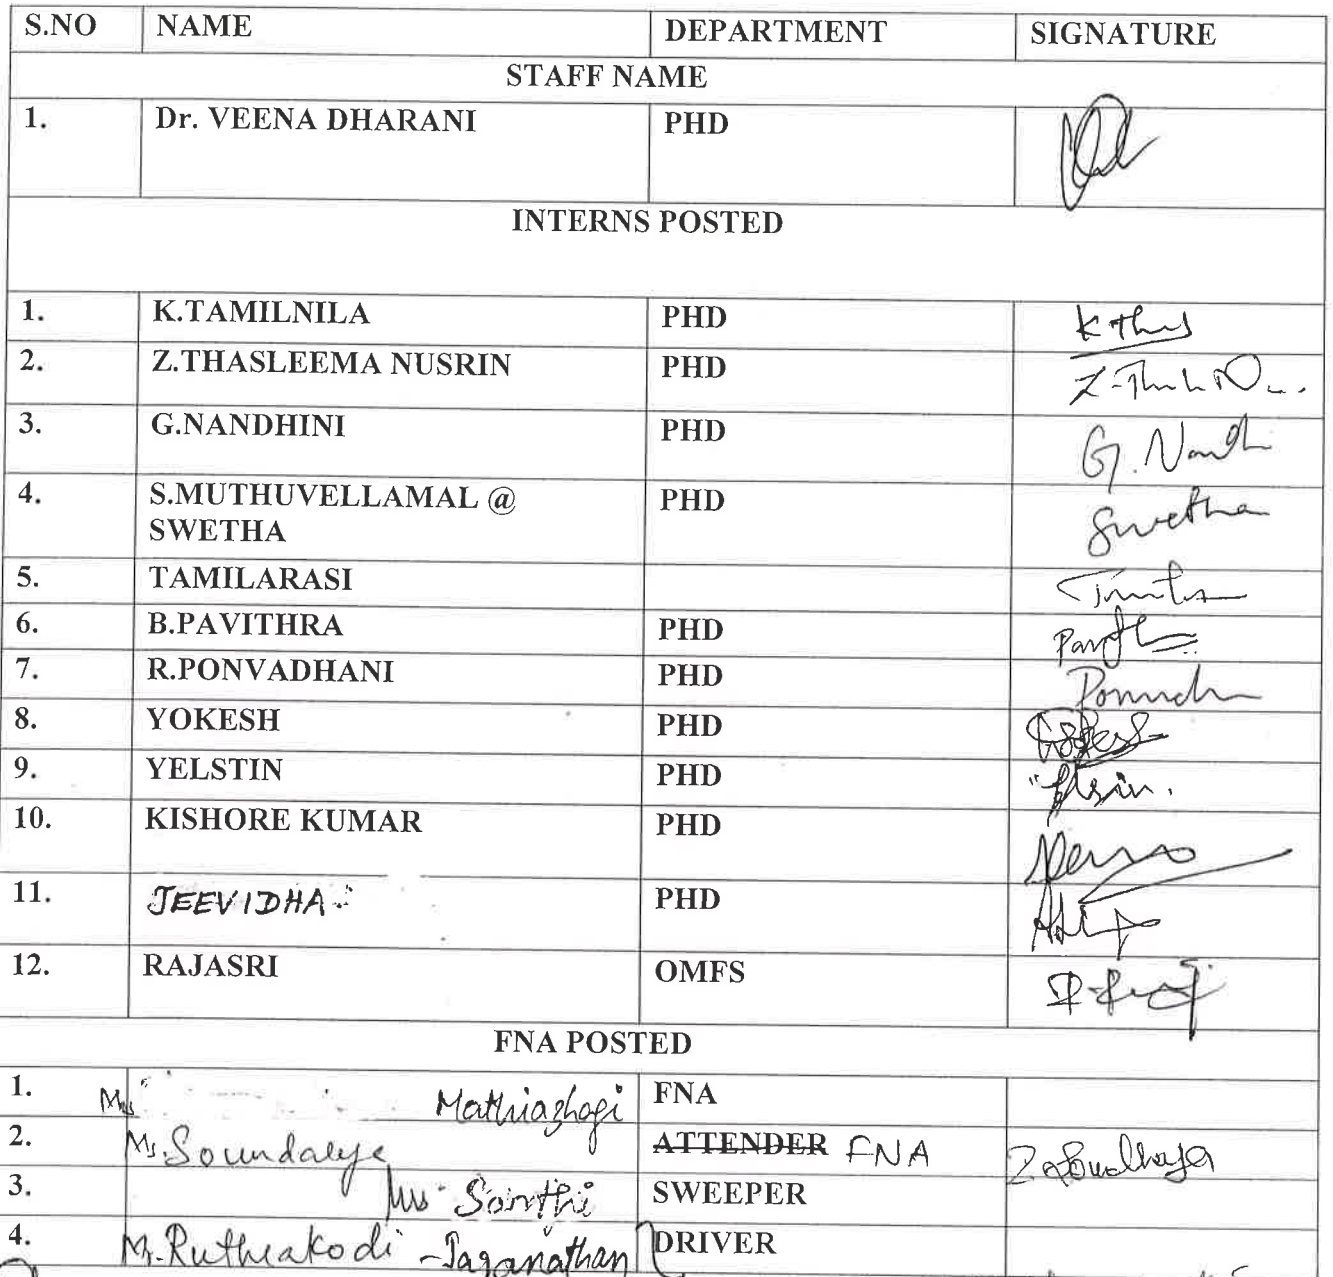 S.NO NAME DEPARTMENT SIGNATURE
STAFF NAME
1. Dr. VEENA DHARANI PHD
INTERNS POSTED
1. K.TAMILNILA PHD
2. Z.THASLEEMA NUSRIN PHD
3. G.NANDHINI PHD G. Nandh
4. S.MUTHUVELLAMAL @ PHD Swetha
SWETHA
5. TAMILARASI
6. B.PAVITHRA PHD
7. R.PONVADHANI PHD
8. YOKESH PHD
9. YELSTIN PHD
10. KISHORE KUMAR PHD
11. JEEVIDHA PHD
12. RAJASRI OMFS
FNA POSTED
1. Mrs Mathiazhagi FNA
2. Ms. Soundarya ATTENDER FNA
3. Mrs Santhi SWEEPER
4. Mr. Ruthrakodi - Jaganathan DRIVER